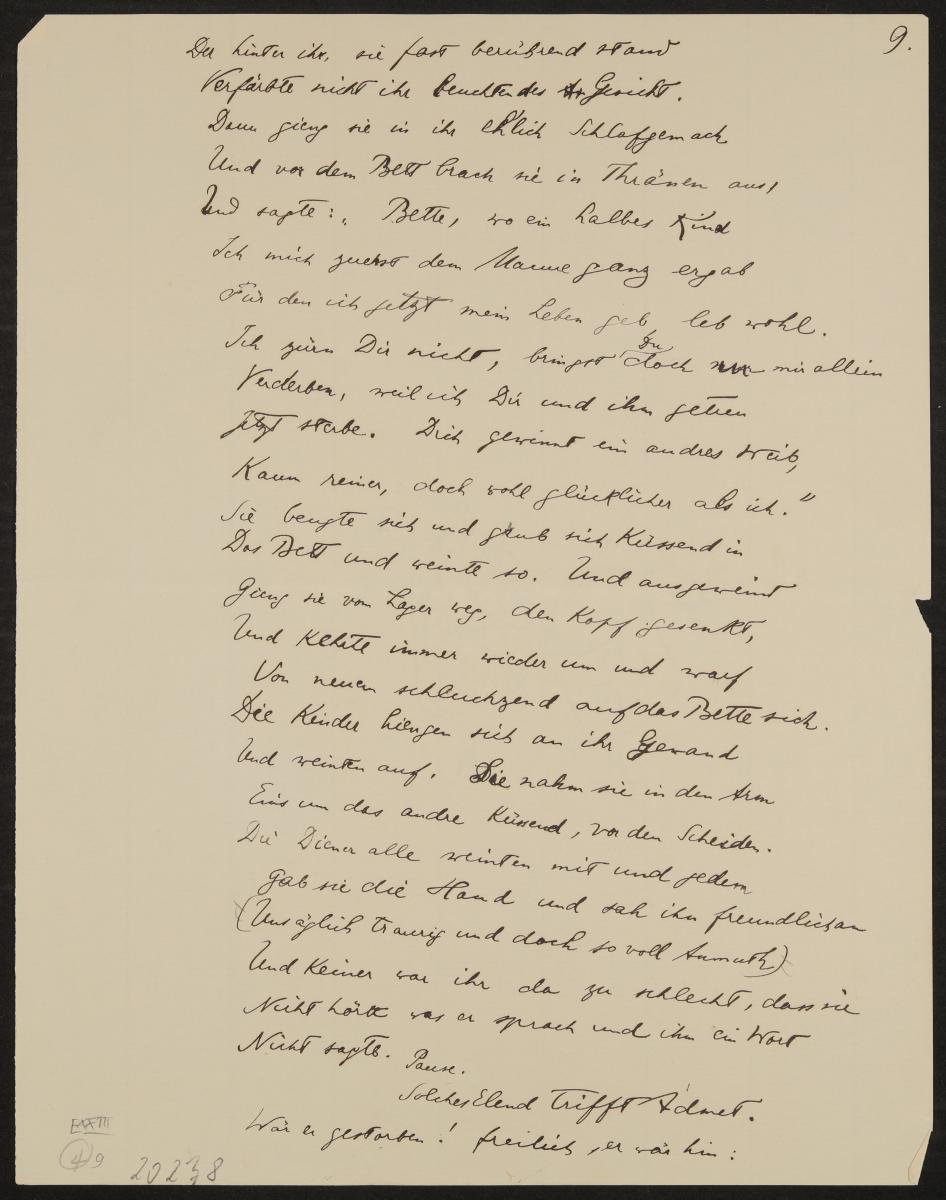 9.
Der hinter ihr, sie fast berührend stand
Verfärbte nicht ihr leuchtendes Gesicht.
Dann gieng sie in ihr ehlich Schlafgemach
Und vor dem Bett brach sie in Thränen aus,
Und sagte: „ Bette, wo ein halbes Kind
Ich mich zuerst dem Manne ganz ergab
Für den ich jetzt mein Leben geb, leb wohl.
Ich zürn Dir nicht, bringst Du doch nur mir allein
Verderben, weil ich Dir und ihm getreu
Jetzt sterbe. Dich gewinnt ein andres Weib,
Kaum reiner, doch wohl glücklicher als ich."
Sie beugte sich und grub sich Küssend in
Das Bett und weinte so. Und ausgeweint
Gieng sie vom Lager weg, den Kopf gesenkt,
Und Kehrte immer wieder um und warf
Von neuem schluchzend auf das Bette sich.
Die Kinder hiengen sich an ihr Gewand
Und weinten auf. Sie nahm sie in den Arm
Eins um das andre Küssend, vor den Scheiden.
Die Diener alle weinten mit und jedem
Gab sie die Hand und sah ihn freundlich an
(Unsäglich traurig und doch so voll Anmuth)
Und Keiner war ihr da zu schlecht, dass sie
Nicht hörte was er sprach und ihm ein Wort
Nicht sagte.
Pause.
Solches Elend trifft Admet.
Wär er gestorben! freilich, er wär hin:
9
20238